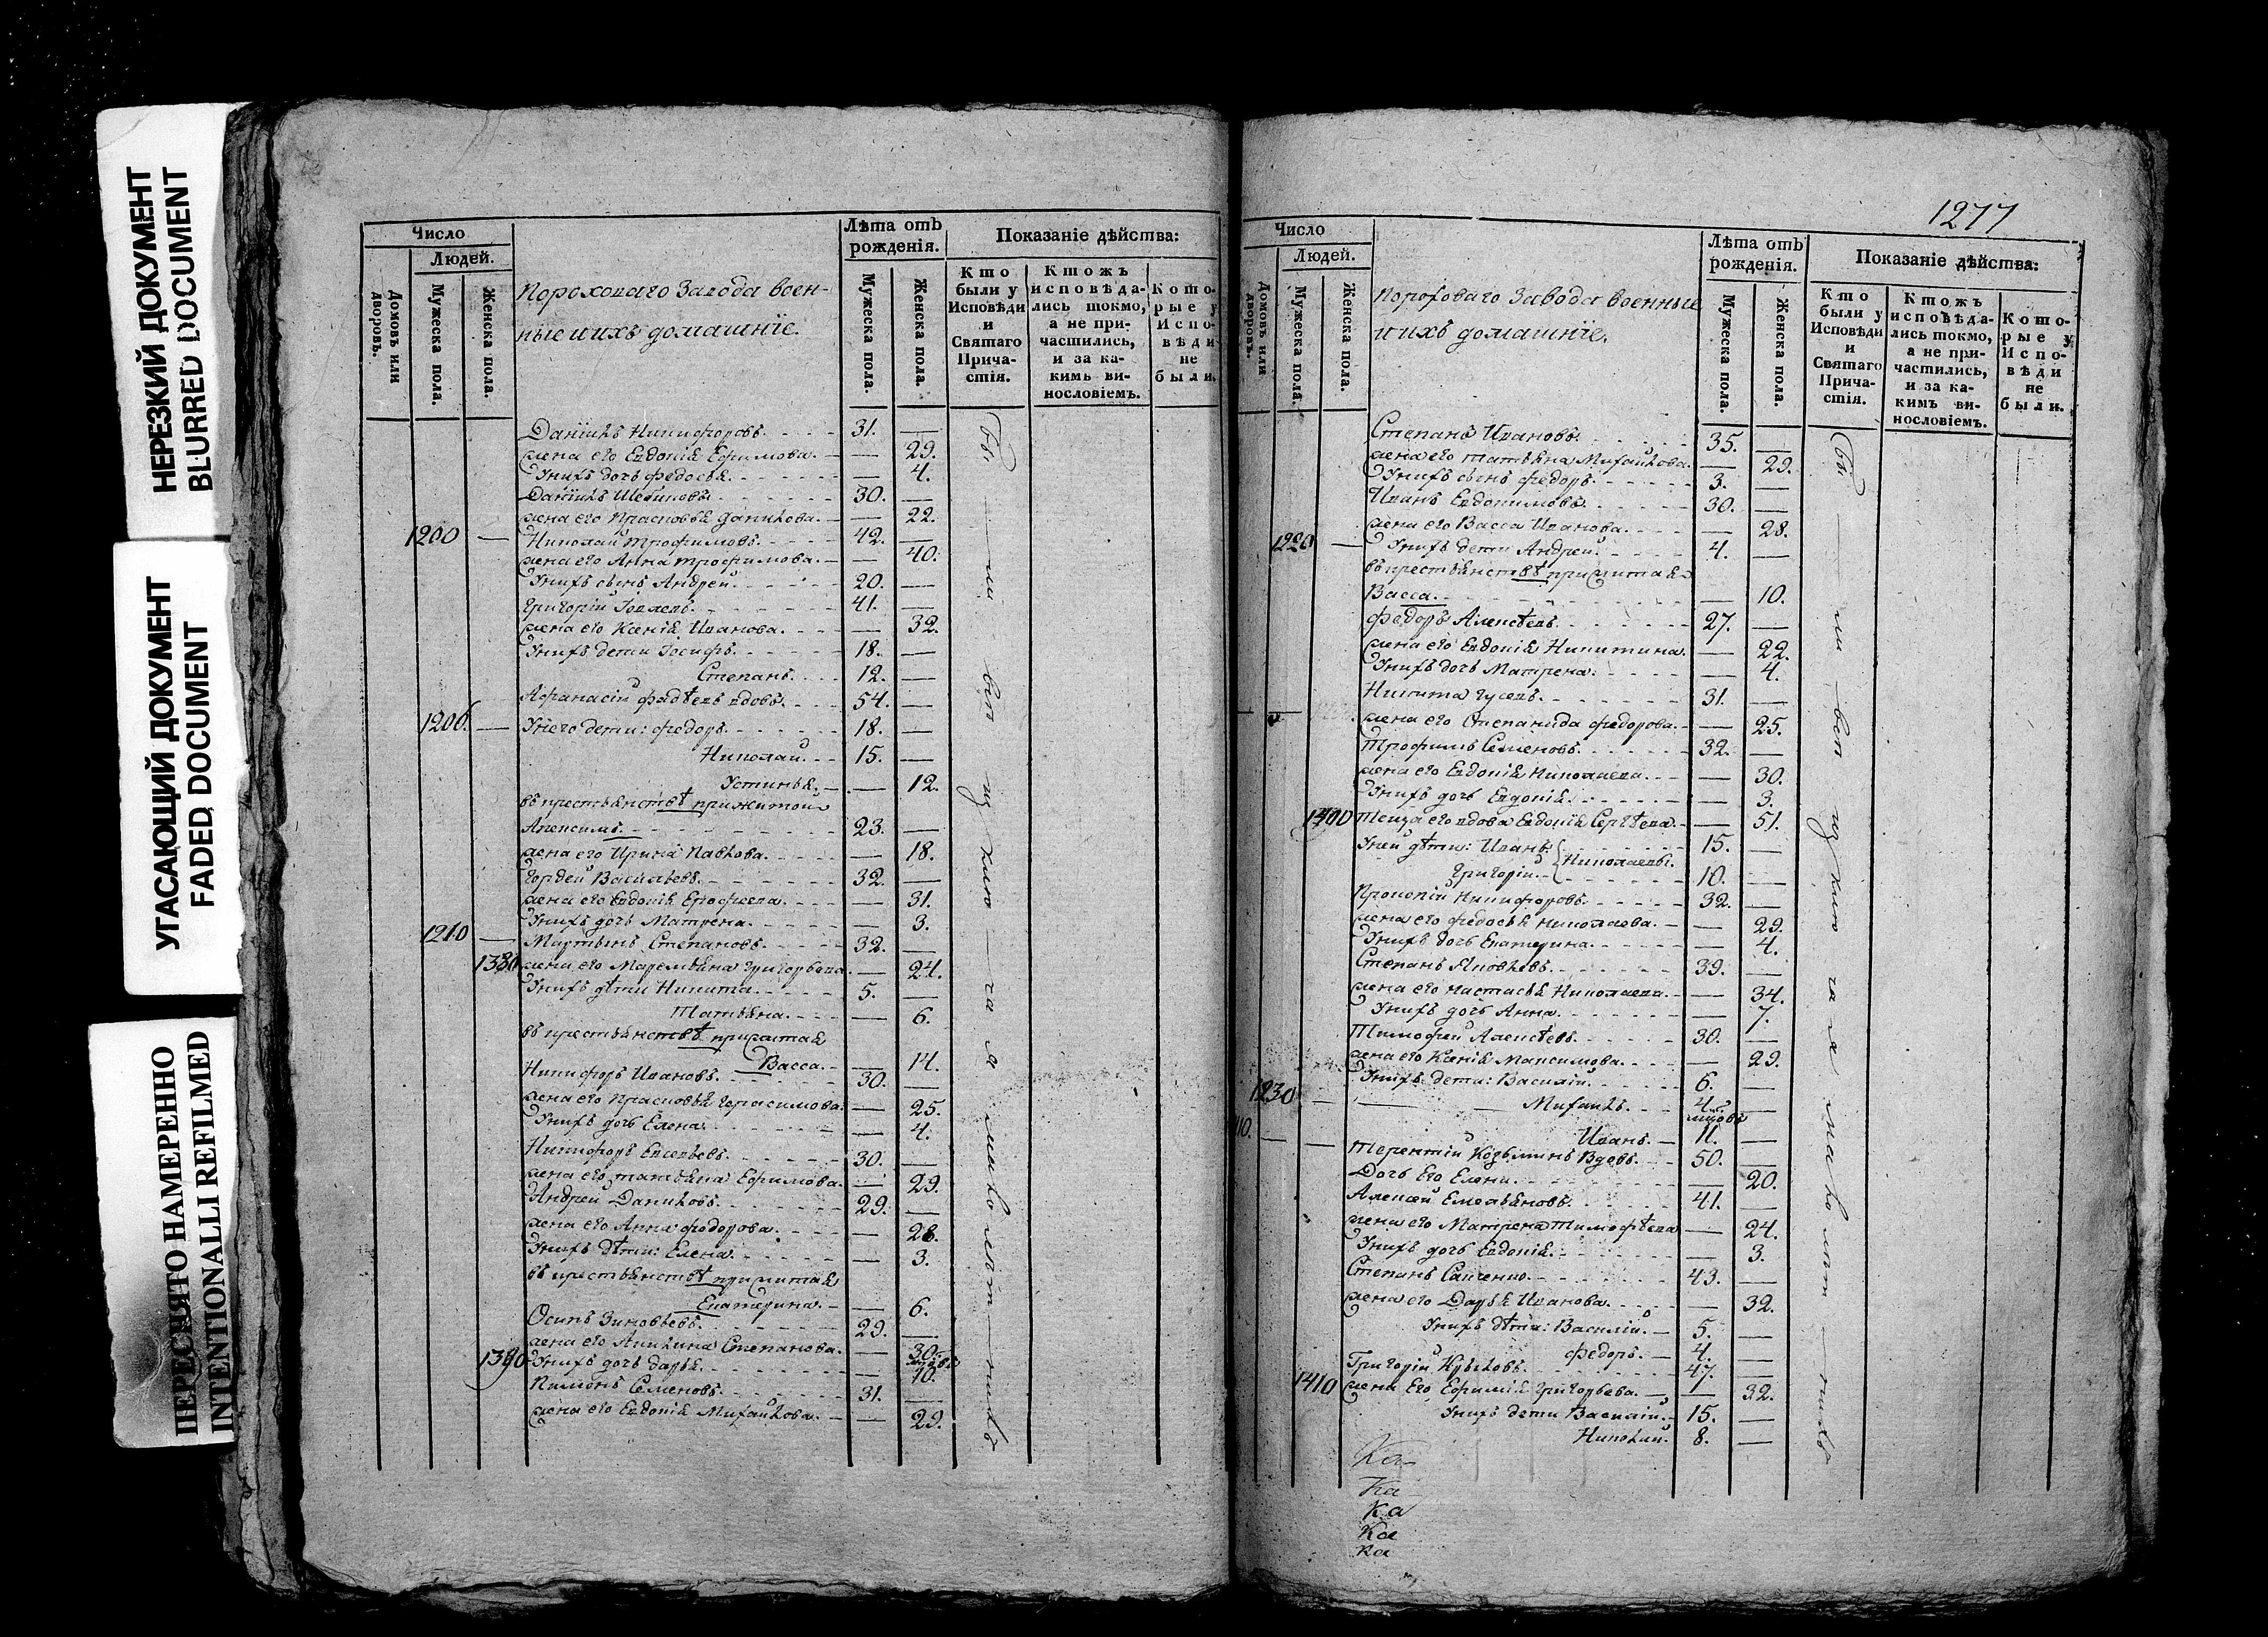 НЕРЕЗКИЙ ДОКУМЕНТ
BLURRED DOCUMENT
УГАСАЮЩИЙ ДОКУМЕНТ
FADED DOCUMENT
ПЕРЕСНЯТО НАМЕРЕННО
INTENTIONALLI REFILMED
Число
Людей.
Домовъ или дворовъ.
Мужеска пола.
Женска пола.
Пороховаго Завода воен-
ные и ихъ домашнїе.
Лѣта отъ рождения.
Мужеска пола.
Женска пола.
Показанїе дѣйства:
Кто были у Исповѣди и Святаго Прича-стїя.
Ктожъ исповѣда-лись токмо, а не при-частились, и за ка-кимъ ви-нословїемъ.
Кото-рые у Испо-вѣди не были.
Данїилъ Никифоровъ. 31. —
жена его Евдокїя Ефимова. — 29.
У нихъ дочь Федосья. — 4.
Данїилъ 30. —
жена его Прасковья Данилова. — 22.
1200 — Николай Трофимовъ. 42. —
жена его Анна Трофимова. — 40.
У нихъ сынъ Андрей. 20. —
Григорїй 41. —
жена его Ксенїя Иванова. — 32.
У нихъ дети Іосифъ. 18. —
Степанъ. 12. —
Афанасїй Фадѣевъ вдовъ. 54. —
1206. — У него дети: Федоръ. 18. —
Николай. 15. —
Устинья. — 12.
въ крестьянствѣ прижитой
Алексимъ. 23. —
жена его Ирина Павлова. — 18.
Гордей Васильевъ. 32. —
жена его Евдокїя Ерофеева. — 31.
У нихъ дочь Матрена. — 3.
1210 — Мартынъ Степановъ. 32. —
1380 жена его Маремьяна Григорьева — 24.
У нихъ дѣти Никита. 5. —
Татьяна. — 6.
въ крестьянствѣ прижитая
Васса. — 14.
Никифоръ Ивановъ. 30. —
жена его Прасковья Герасимова. — 25.
У нихъ дочь Елена. — 4.
Никифоръ Евсевьевъ. 30. —
жена его Татьяна Ефимова. — 29.
Андрей Даниловъ. 29. —
жена его Анна Федорова. — 28.
У нихъ дѣти: Елена. — 3.
въ крестьянствѣ прижитая
Екатерина. — 6.
Осипъ Зиновьевъ. 29. —
жена его Акилина Степанова. — 30.
1390 У нихъ дочь Дарья. — 10.
Пименъ Семеновъ. 31. —
жена его Евдокїя Михайлова. — 29.
1277
Число
Людей.
Домовъ или дворовъ.
Мужеска пола.
Женска пола.
Пороховаго Завода военные
и ихъ домашнїе.
Лѣта отъ рождения.
Мужеска пола.
Женска пола.
Показанїе дѣйства:
Кто были у Исповѣди и Святаго Прича-стїя.
Ктожъ исповѣда-лись токмо, а не при-частились, и за ка-кимъ ви-нословїемъ.
Кото-рые у Испо-вѣди не были.
Степанъ Ивановъ. 35. —
жена его Татьяна Михайлова. — 29.
У нихъ сынъ Федоръ. 3. —
Иванъ Евдокимовъ. 30. —
жена его Васса Иванова. — 28.
1220 — У нихъ дети Андрей. 4. —
въ крестьянствѣ прижитая
Васса. — 10.
Федоръ Алексѣевъ. 27. —
жена его Евдокїя Никитина. — 22.
У нихъ дочь Матрена. — 4.
Никита Гусевъ. 31. —
жена его Степанида Федорова. — 25.
Трофимъ Семеновъ. 32. —
жена его Евдокїя Николаева. — 30.
У нихъ дочь Евдокїя. — 3.
1400 Теща его вдова Евдокїя Сергѣева. — 51.
У ней дѣти: Иванъ } Николаевы. 15. —
Григорїй 10. —
Прокопїй Никифоровъ. 32. —
жена его Федосья Николаева. — 29.
У нихъ дочь Екатерина. — 4.
Степанъ Яковлевъ. 39. —
жена его Настасья Николаева. — 34.
У нихъ дочь Анна. — 7.
Тимофей Алексѣевъ. 30. —
жена его Ксенїя Максимова. — 29.
У нихъ дети: Василїй. 6. —
1230 — Михаилъ. 4. —
Иванъ. —
Терентїй Козьминъ Вдовъ. 50. —
Дочь Его Елена. — 20.
Алексей Емельяновъ. 41. —
жена его Матрена Тимофѣева — 24.
У нихъ дочь Евдокїя. — 3.
Степанъ Савченко. 43. —
жена его Дарья Иванова. — 32.
У нихъ дѣти: Василїй. 5. —
Федоръ. 4. —
Григорїй Крыловъ. 47. —
1410 жена Его Ефимїя Григорьева. — 32.
У нихъ дети Василїй. 15. —
Николай. 8. —
Ка
Ка
Ка
Ка
Ка